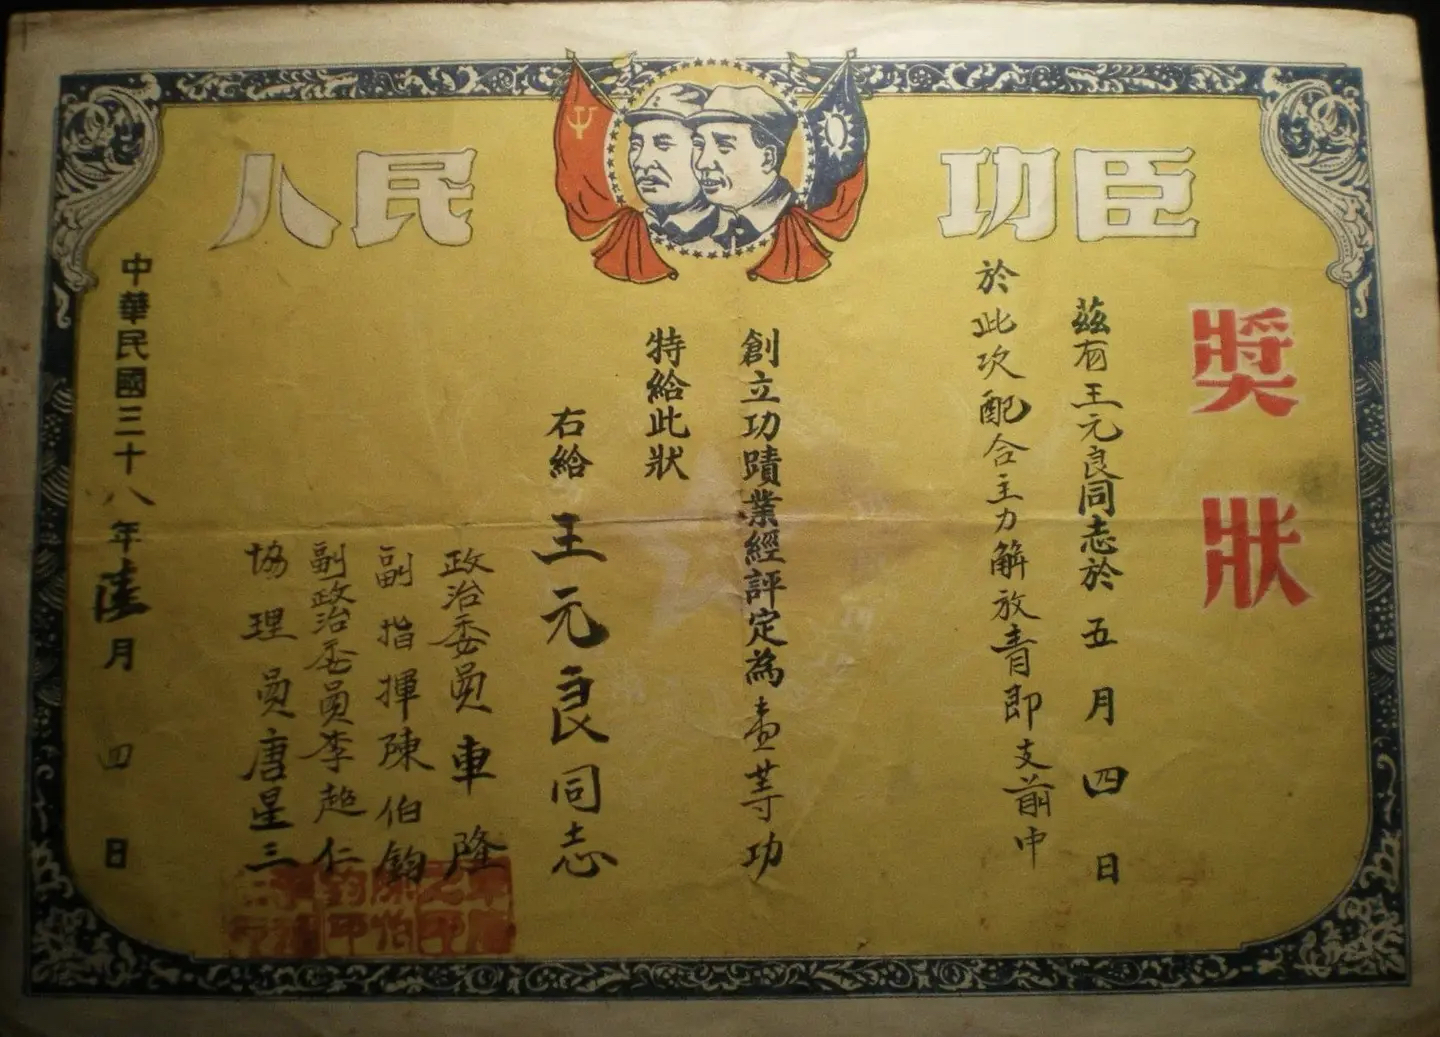 人民功臣
獎狀
茲有王元良同志於五月四日
於此次配合主力解放青即支前中
創立功蹟業經評定為壹等功
特給此狀
右給王元良同志
政治委員車隆
副指揮陳伯鈞
副政治委員李超仁
協理員唐星三
中華民國三十八年陸月四日